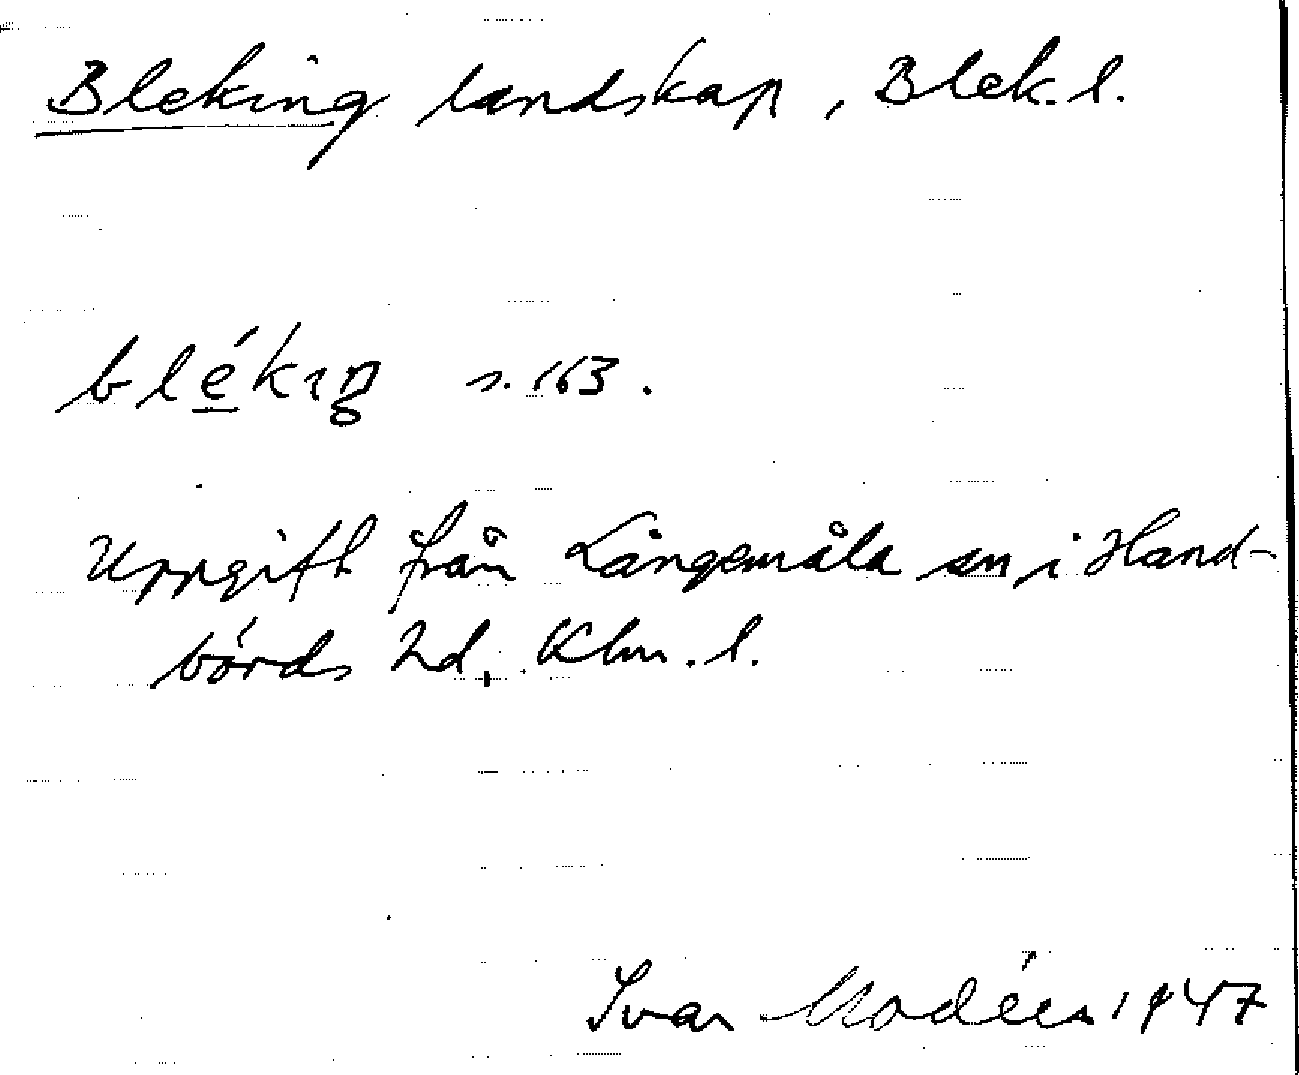 Bleking landskap, Blek. l.
blé̲kıŋ s. 163.
Uppgift från Långemåla sn i Hand-
börds hd, Klm. l.
Ivar Modéer 1947